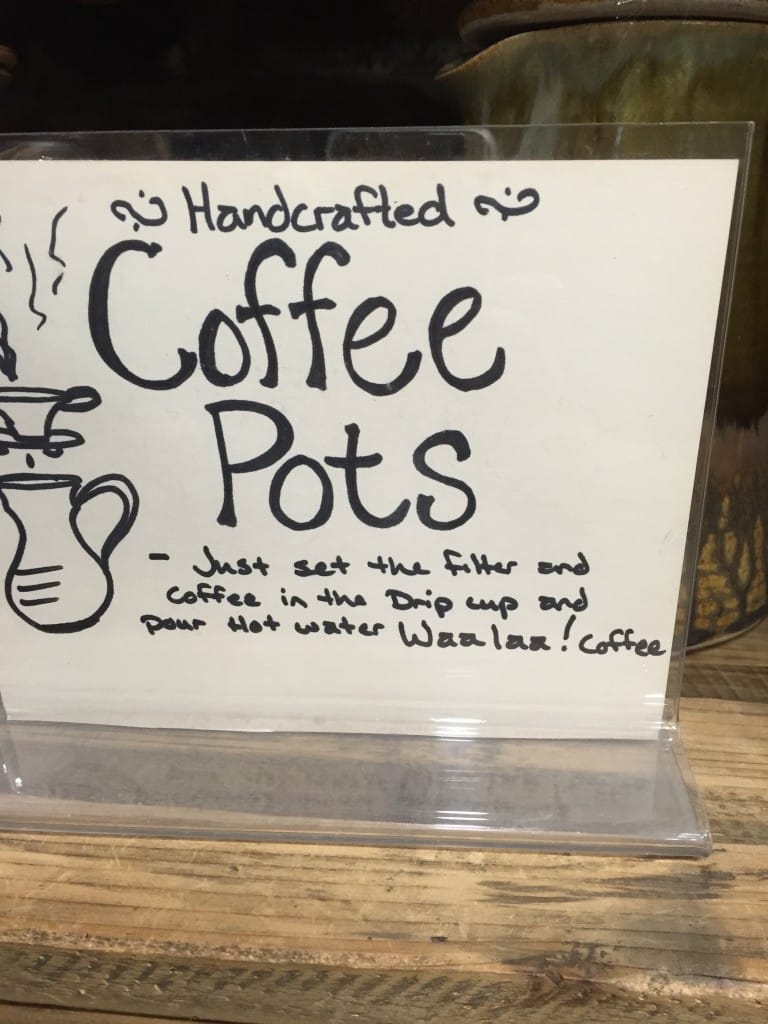 Handcrafted
Coffee
Pots
- Just set the filter and
coffee in the Drip cup and
pour Hot water Waalaa! coffee